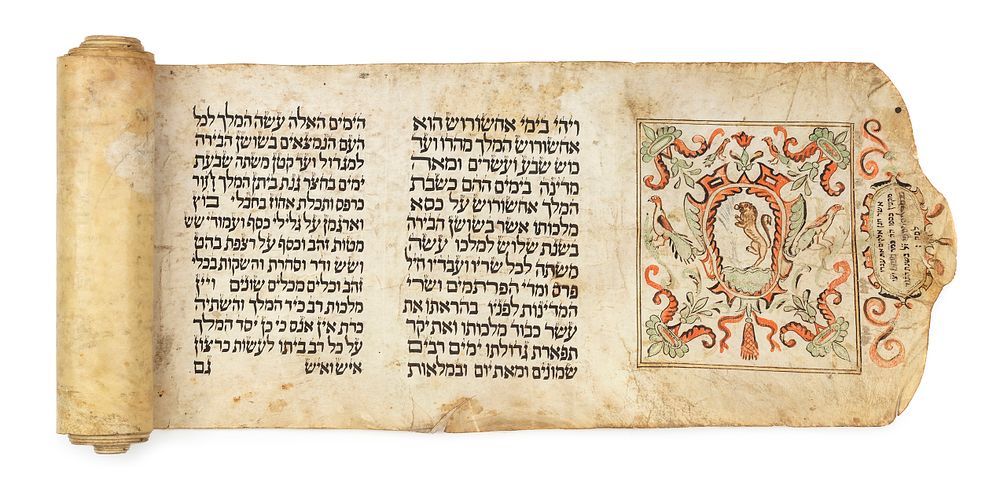 ויהי בימי אחשורוש הוא
אחשורוש המלך מהדו ועד
כוש שבע ועשרים ומאה
מדינה בימים ההם כשבת
המלך אחשורוש על כסא
מלכותו אשר בשושן הבירה
בשנת שלוש למלכו עשה
משתה לכל שריו ועבדיו חיל
פרס ומדי הפרתמים ושרי
המדינות לפניו בהראתו את
עשר כבוד מלכותו ואת יקר
תפארת גדולתו ימים רבים
שמונים ומאת יום ובמלאות
הימים האלה עשה המלך לכל
העם הנמצאים בשושן הבירה
למגדול ועד קטן משתה שבעת
ימים בחצר גנת ביתן המלך חור
כרפס ותכלת אחוז בחבלי בוץ
וארגמן על גלילי כסף ועמודי שש
מטות זהב וכסף על רצפת בהט
ושש ודר וסחרת והשקות בכלי
זהב וכלים מכלים שונים ויין
מלכות רב כיד המלך והשתיה
כדת אין אנס כי כן יסד המלך
על כל רב ביתו לעשות כרצון
איש ואיש גם